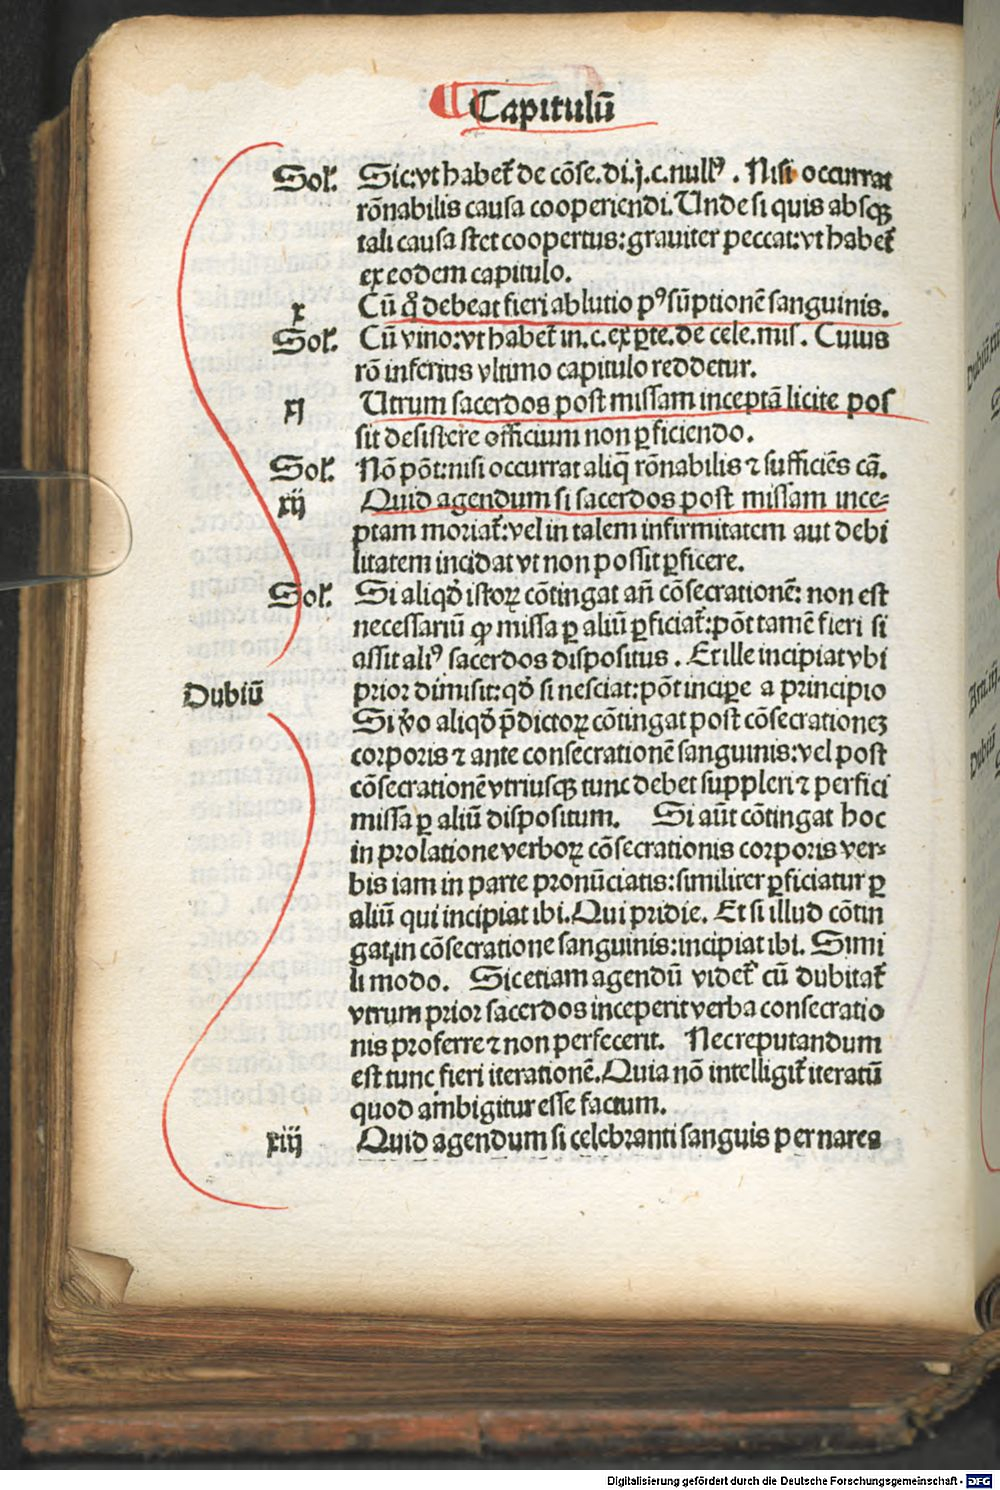 Capitulū
Sol'. Sic: vt habet̃ de cōse. di. j. c. nullꝰ. Nisi occurrat
rōnabilis causa cooperiendi. Unde si quis absqꝫ
tali causa stet coopertus: grauiter peccat: vt habet̃
ex eodem capitulo.
x Cū qͦ debeat fieri ablutio pꝰ sūptionē sanguinis.
Sol'. Cū vino: vt habet̃ in. c. ex ꝑte. de cele. mis. Cuius
rō inferius vltimo capitulo reddetur.
xj Utrum sacerdos post missam inceptā licite pos
sit desistere officium non ꝑficiendo.
Sol'. Nō pōt: nisi occurrat aliq̄ rōnabilis ⁊ sufficiēs cā.
xij Quid agendum si sacerdos post missam ince⸗
ptam moriat̃: vel in talem infirmitatem aut debi
litatem incidat vt non possit ꝑficere.
Sol'. Si aliqđ istoꝝ cōtingat añ cōsecrationē: non est
necessariū ꝙ missa ꝑ aliū ꝑficiat̃: pōt tamē fieri si
assit aliꝰ sacerdos dispositus. Et ille incipiat vbi
Dubiū prior dimisit: qđ si nesciat: pōt incipe a principio
Si v̊o aliqđ p̄dictoꝝ cōtingat post cōsecrationeꝫ
corporis ⁊ ante consecrationē sanguinis: vel post
cōsecrationē vtriusqꝫ tunc debet suppleri ⁊ perfici
missa ꝑ aliū dispositum. Si aūt cōtingat hoc
in prolatione verboꝝ cōsecrationis corporis ver⸗
bis iam in parte pronūciatis: similiter ꝑficiatur ꝑ
aliū qui incipiat ibi. Qui pridie. Et si illud cōtin
gat in cōsecratione sanguinis: incipiat ibi. Simi
li modo. Sic etiam agendū videt̃ cū dubitat̃
vtrum prior sacerdos inceperit verba consecratio
nis proferre ⁊ non perfecerit. Nec reputandum
est tunc fieri iterationē. Quia nō intelligit̃ iteratū
quod ambigitur esse factum.
xiij Quid agendum si celebranti sanguis per nares
Digitalisierung gefördert durch die Deutsche Forschungsgemeinschaft - DFG